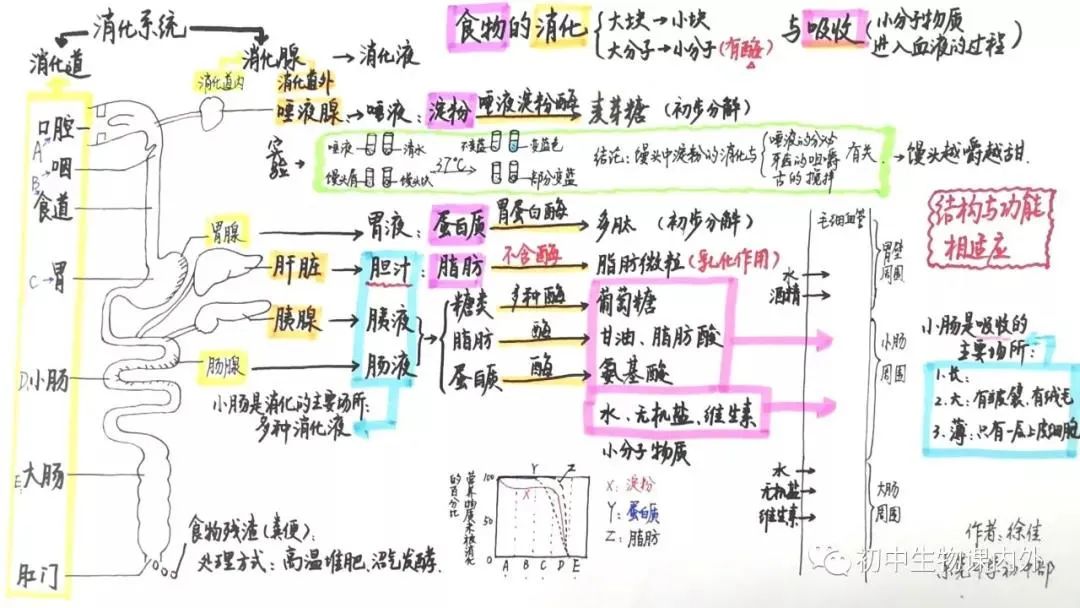 消化系统
消化道
消化腺 → 消化液
消化道内
消化道外
食物的消化
大块→小块
大分子→小分子(有酶)
与吸收
(小分子物质
进入血液的过程)
口腔
A
咽
B
食道
C→胃
D.小肠
E.大肠
肛门
唾液腺→唾液:淀粉 唾液淀粉酶 麦芽糖(初步分解)
实验
唾液 清水
馒头屑 馒头块
37℃
不变蓝 变蓝色
部分变蓝
结论:馒头中淀粉的消化与
唾液的分泌
牙齿的咀嚼
舌的搅拌
有关.
→馒头越嚼越甜.
胃腺 胃液:蛋白质 胃蛋白酶 多肽(初步分解)
肝脏→胆汁:脂肪 不含酶 脂肪微粒(乳化作用)
胰腺→胰液
肠腺 肠液
糖类 多种酶 葡萄糖
脂肪 酶 甘油、脂肪酸
蛋白质 酶 氨基酸
水、无机盐、维生素
小分子物质
小肠是消化的主要场所:
多种消化液
毛细血管
水
酒精
胃壁
周围
小肠
周围
水
无机盐
维生素
大肠
周围
结构与功能
相适应
小肠是吸收的
主要场所:
1.长:
2.大:有皱襞、有绒毛
3.薄:只有一层上皮细胞
食物残渣(粪便):
处理方式:高温堆肥、沼气发酵.
营养物质未被消化
的百分比
100
50
0
Y Z
X
A B C D E
X:淀粉
Y:蛋白质
Z:脂肪
作者:徐佳
初中生物课内外